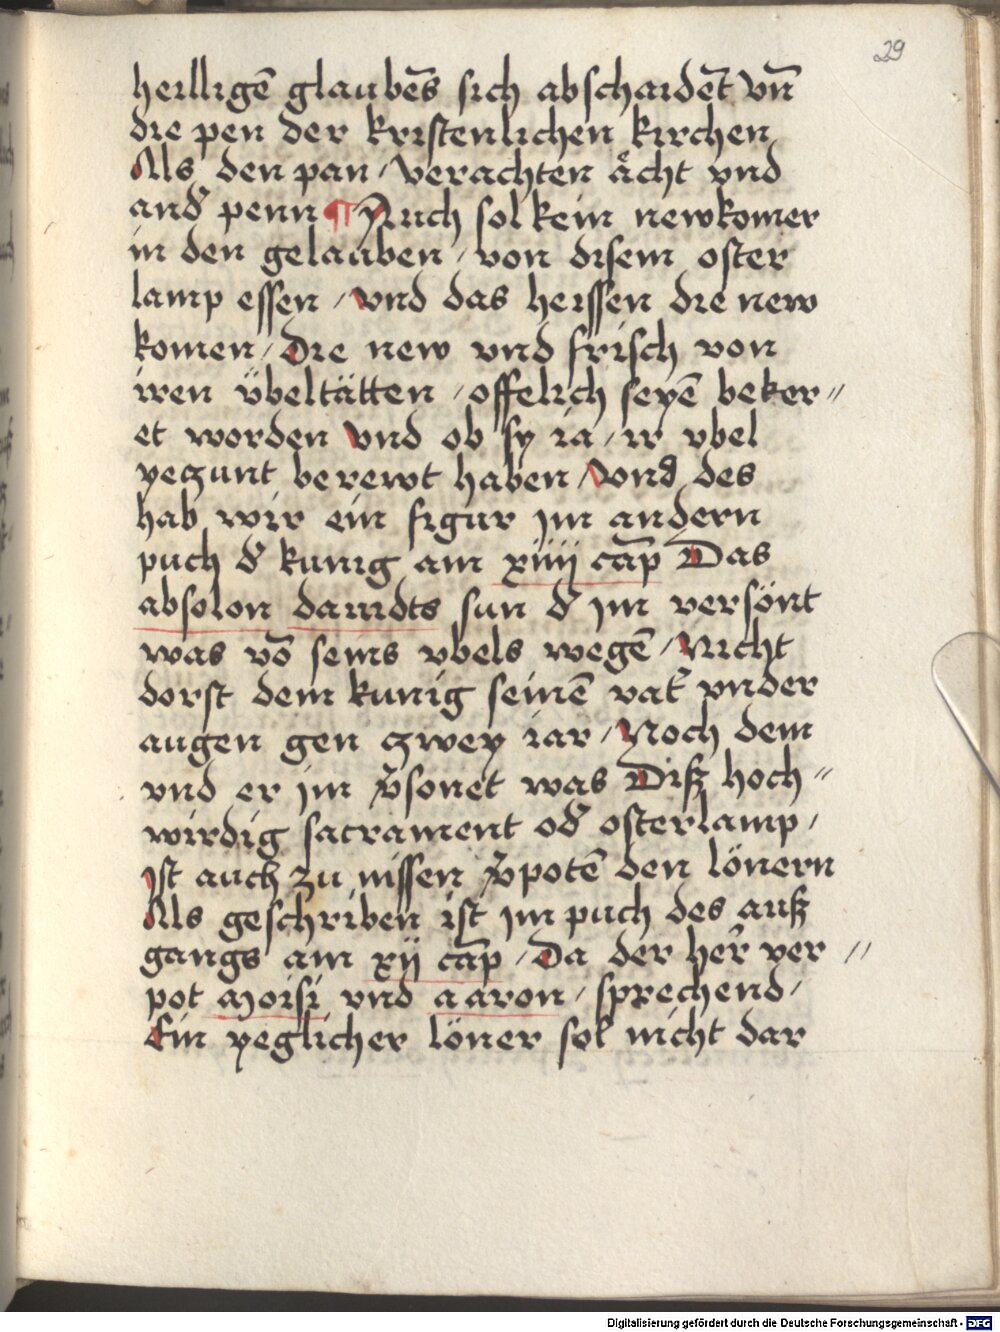 29
heilligē glaubēs sich abschaidēt vn̄
die pen der kristenlichen kirchen
Als den pan / verachten ächt vnd
and̄ penn ¶ Auch sol kein newkomer
in den gelauben / von disem oster
lamp essen / vnd das heissen die new
komen / Die new vnd frisch von
iren übeltätten / offelich seyē beker〃
et worden vnd ob sy ia / ir vbel
yeczunt berewt haben / Vnd des
hab wir ein figur jm andern
puch d̄ kunig am xiiij cāp Das
absolon dauidts sun d̄ jm versönt
was vō seins vbels wegē / Nicht
dorst dem kunig seinē vat̄ vnder
augen gen czwey iar / Noch dem
vnd er jm v̄sonet was Diß hoch〃
wirdig sacrament od̄ osterlamp /
ist auch zu nissen v̄potē den lönern
Als geschriben ist jm puch des auß
gangs am xij cāp / Da der her̄ ver〃
pot Moisi vnd aaron / sprechend /
Ein yeglicher löner sol nicht dar
Digitalisierung gefördert durch die Deutsche Forschungsgemeinschaft - DFG